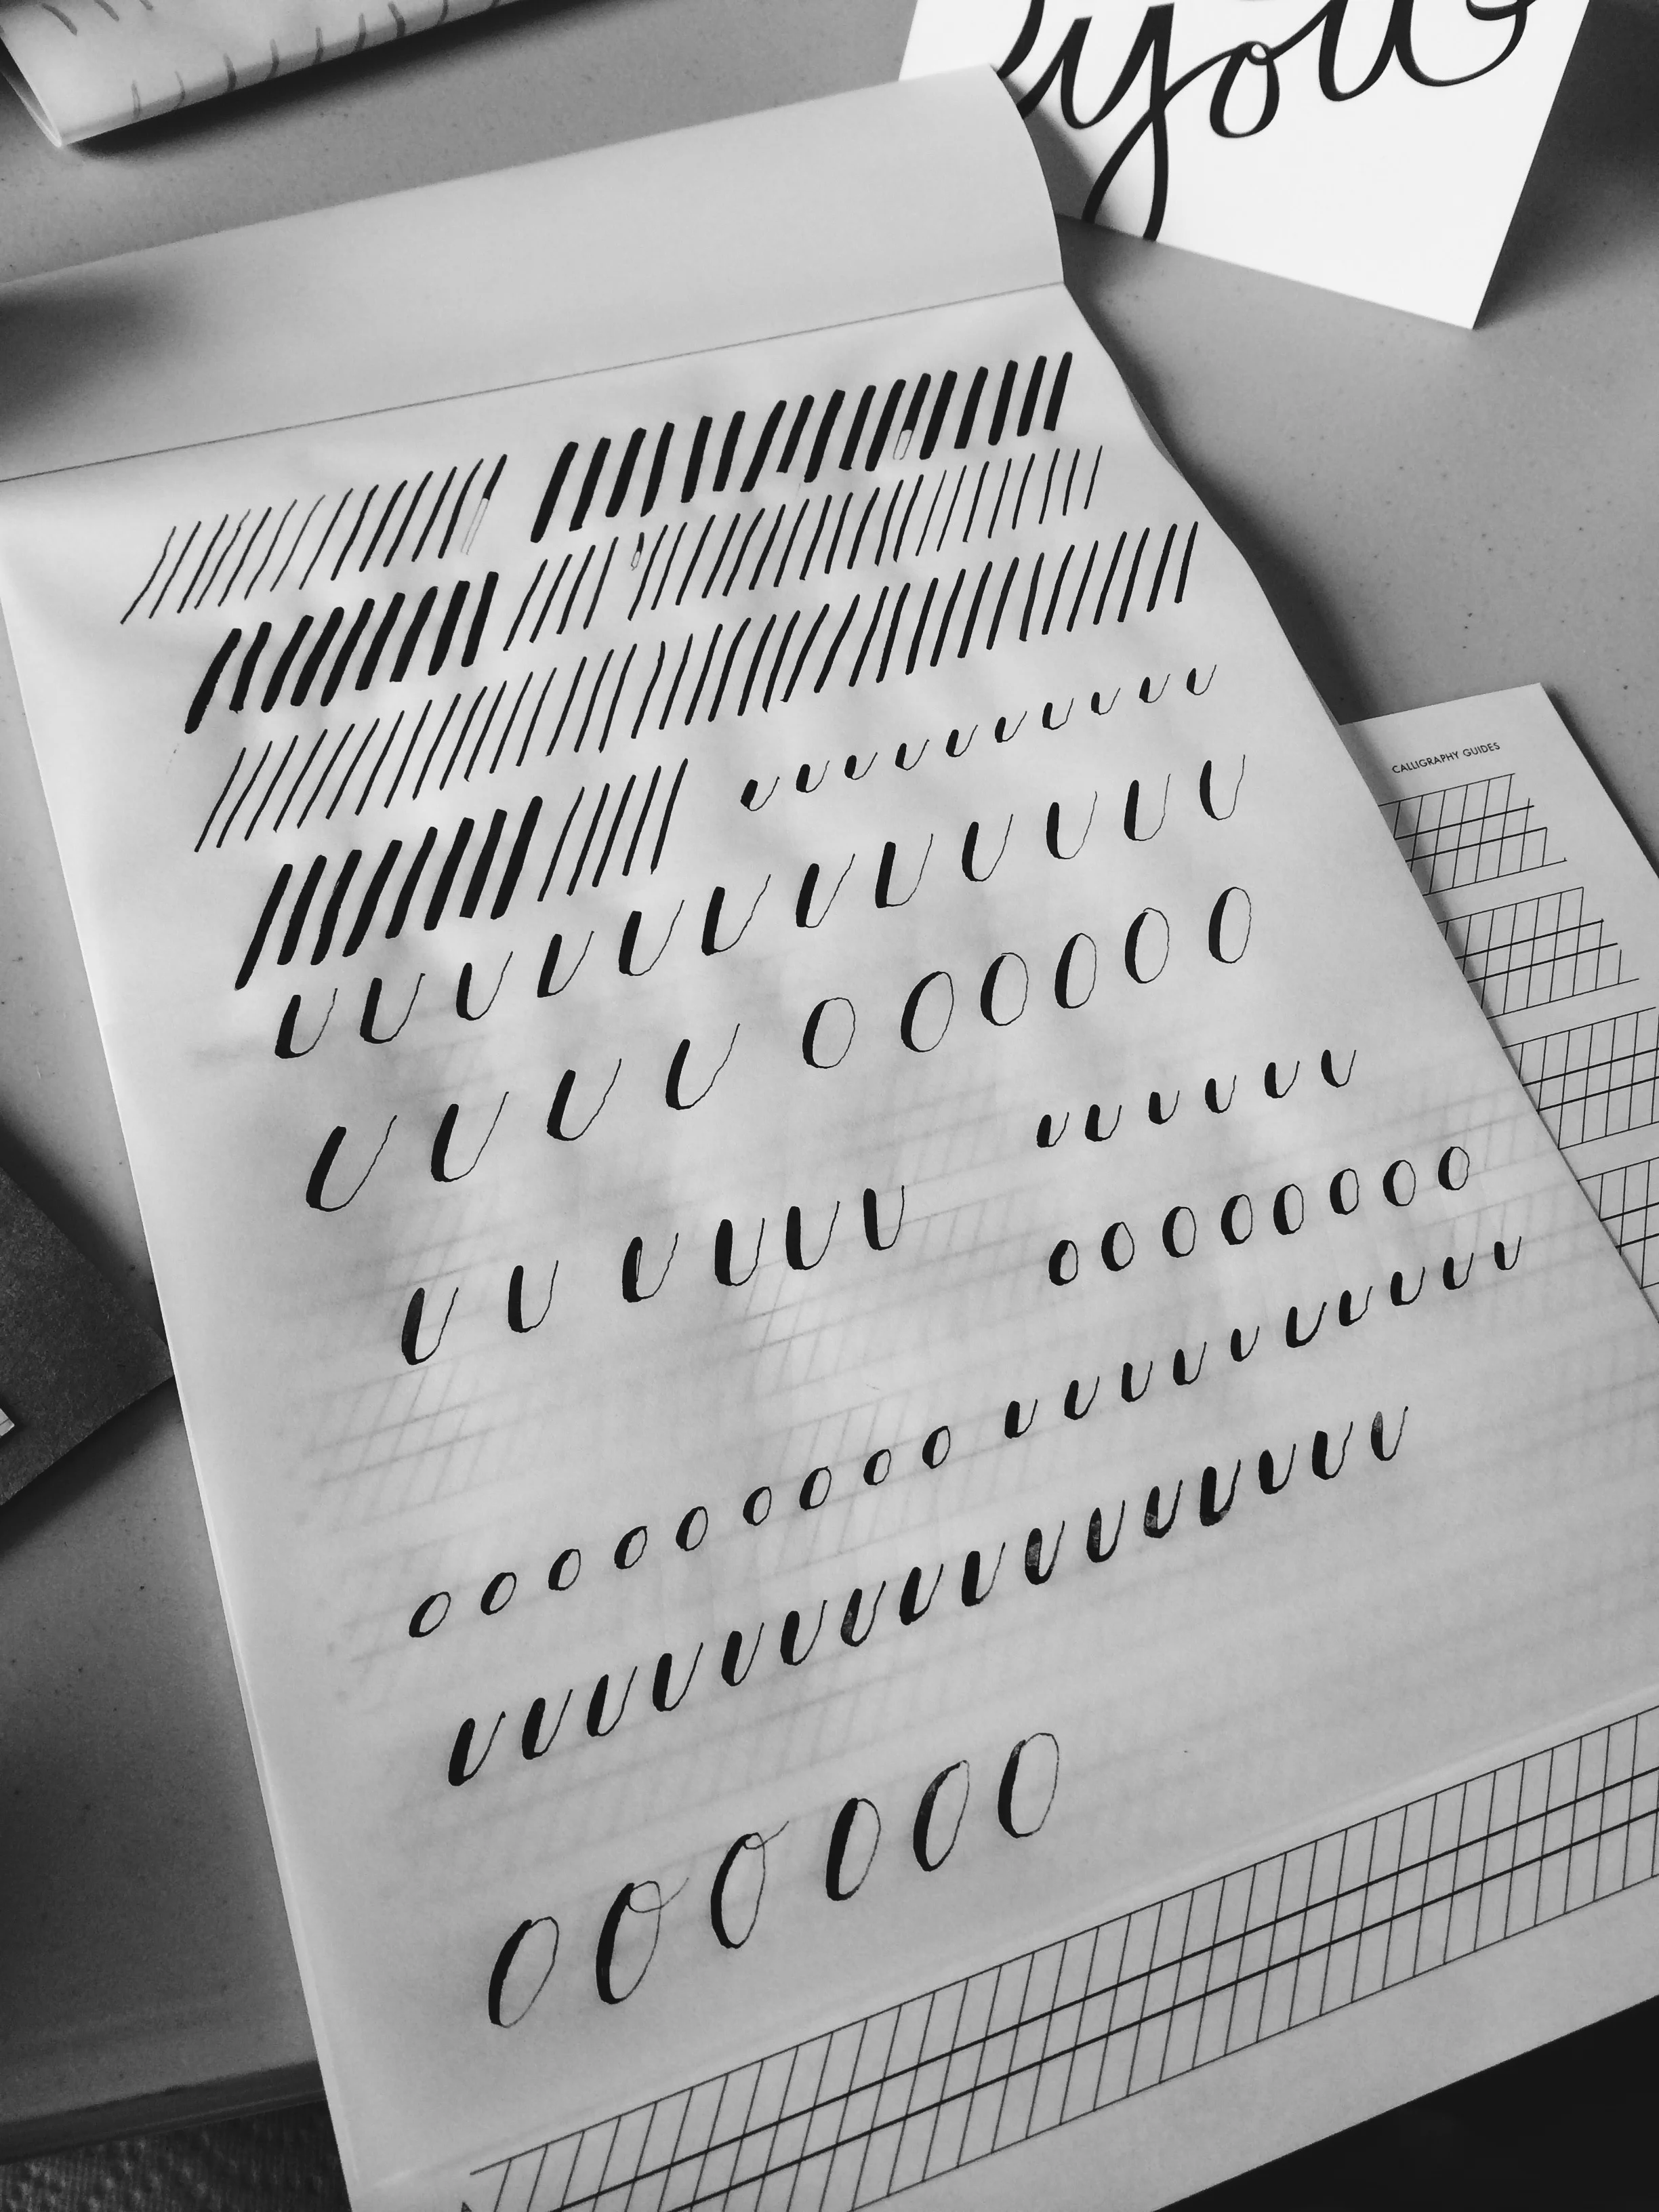 you
CALLIGRAPHY GUIDES
u u u u u u u u u u
u u u u u u u u u u u u
u u u u o o o o o o
u u u u u u
u u u u u u o o o o o o o o
o o o o o o o o o u u u u u u u u u u
u u u u u u u u u u u u u u u u
o o o o o o